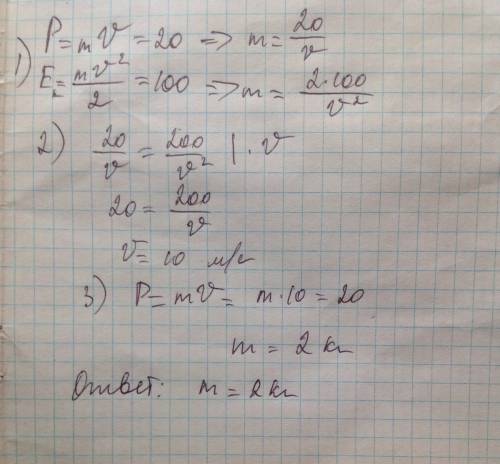 1) P = mV = 20 => m = 20/V
E = mV²/2 = 100 => m = 2·100/V²
2) 20/V = 200/V² | · V
20 = 200/V
V = 10 м/с
3) P = mV = m·10 = 20
m = 2 кг
Ответ: m = 2 кг